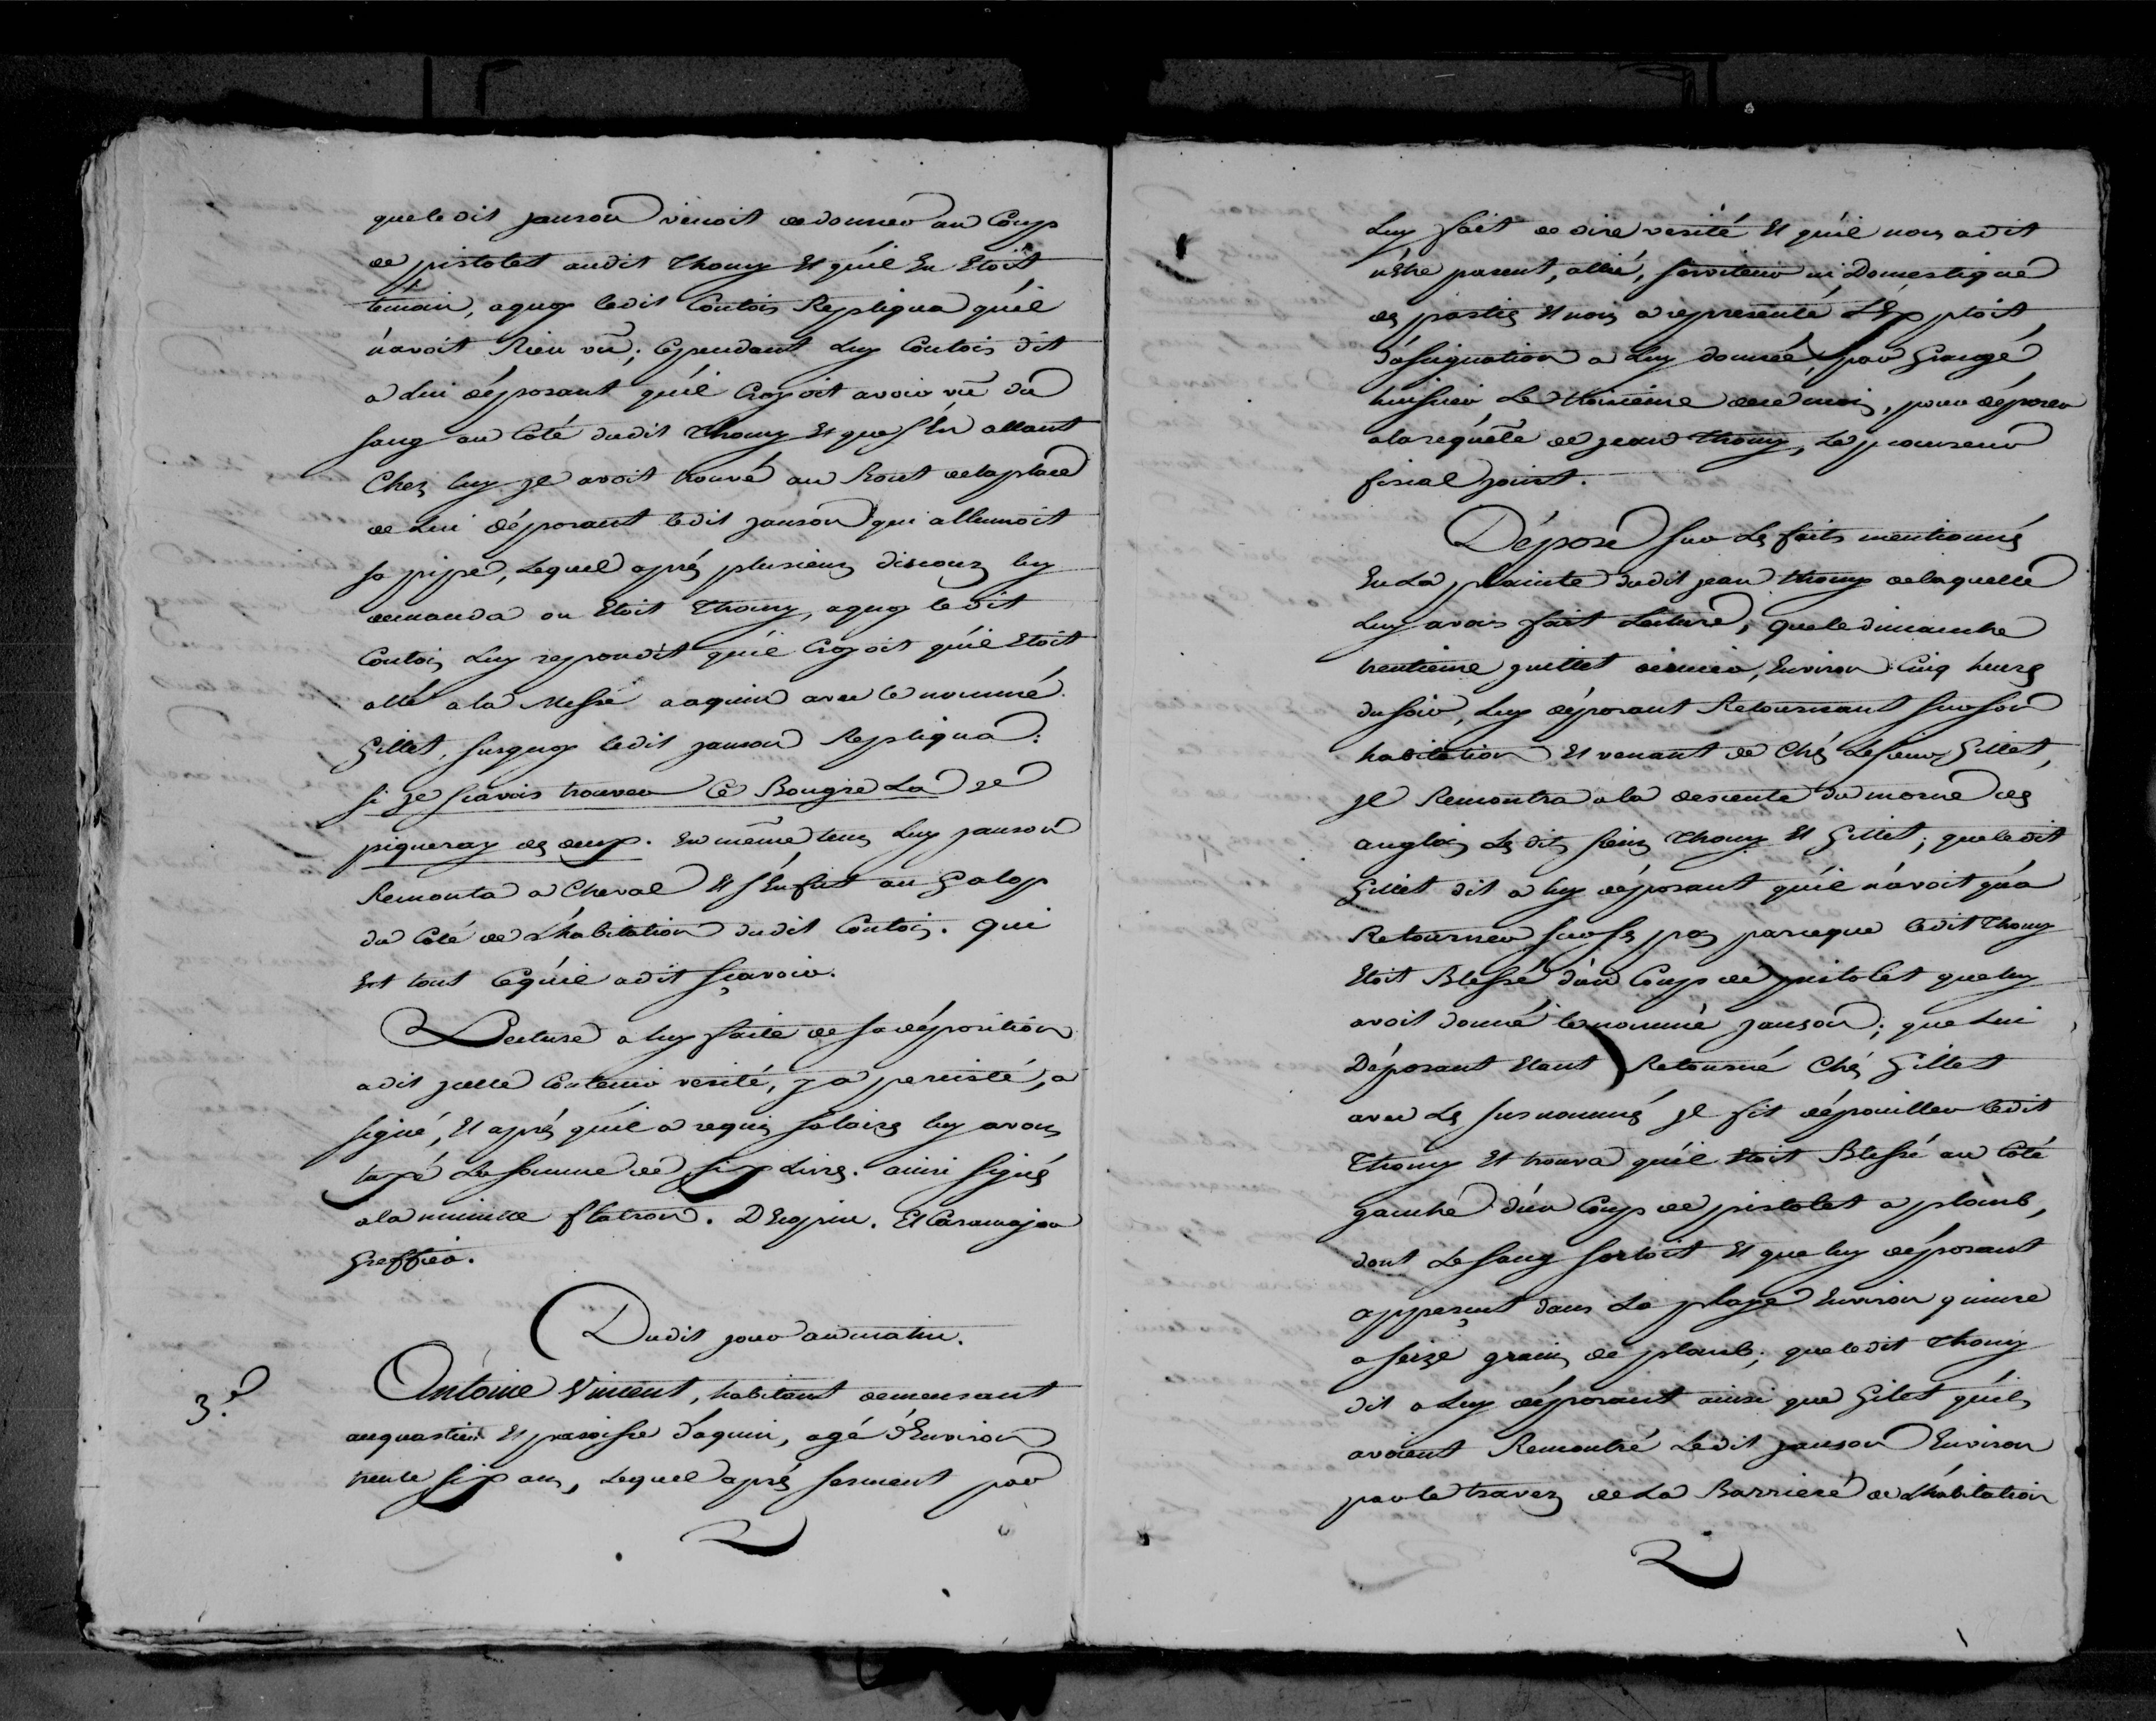 que le dit janson venoit de donner un Coup
de pistolet audit Thomy Et qu'il En Etoit
temoin, a quoy ledit Contois Repliqua qu'il
n'avoit Rien vû; Cependant Luy Contois dit
a Lui déposant qu'il Croyoit avoir vû du
sang au Coté dudit Thomy Et que s'En allant
Chez luy Il avoit trouvé au Bout de la place
de Lui déposant ledit janson qui allumoit
sa pipe, Lequel aprés plusieurs discours luy
demanda ou Etoit Thomy, a quoy le dit
Contois Luy repondit qu'il Croyoit qu'il Etoit
allé a la Messe a aquin avec le nommé
Gillet, surquoy ledit janson Repliqua:
si je sçavois trouver Ce Bougre La je
piqueray des deux. En même tems Luy janson
Remonta a Cheval Et s'Enfut au Galop
du Coté de L'habitation dudit Contois. Qui
Est tout Ce qu'il a dit sçavoir.
Lecture a luy faite de sa déposition
a dit jcelle Contenir verité, y a persisté, a
signé, Et aprés qu'il a requis salaires luy avons
taxé La somme de six Livres. ainsi signés
a la minute flatron. Et Caramajou
Greffier.
Dudit jour au matin.
3.e
Antoine Vincent, habitant demeurant
au quartier Et paroisse d'aquin, agé d'Environ
trente six ans, Lequel aprés serment par
Luy fait de dire verité Et qu'il nous a dit
n'Etre parent, allié, serviteur ni Domestique
des parties Et nous a representé L'Exploit
d'assignation a Luy donnée, par Grangé
huissier Le troisieme de ce mois, pour déposer
a la requête de jean Thomy, Le procureur
fiscal joint.
Dépose sur Les faits mentionnés
En La plainte dudit jean Thomy de laquelle
Luy avons fait Lecture, que le dimanche
trentieme juillet dernier, Environ Cinq heures
du soir, Luy déposant Retournant sur son
habitation Et venant de Chés Le sieur Gillet,
Il Rencontra a la descente du morne des
anglois Les dits sieurs Thomy Et Gillet; que le dit
Gillet dit a luy déposant qu'il n'avoit qu'a
Retourner sur ses pas parceque ledit Thomy
Etoit Blessé d'un Coup de pistolet que luy
avoit donné le nommé janson; que Lui
Déposant Etant Retourné Chés Gillet
avec Les susnommés Il fit dépouiller ledit
Thomy Et trouva qu'il Etoit Blessé au Coté
gauche d'un Coup de pistolet a plomb,
dont Le sang sortoit Et que luy déposant
apperçut dans La playe Environ quinze
a seize grains de plomb; que le dit Thomy
dit a Luy déposant ainsi que Gilet qu'ils
avoient Rencontré Ledit janson Environ
par le travers de La Barriere de L'habitation